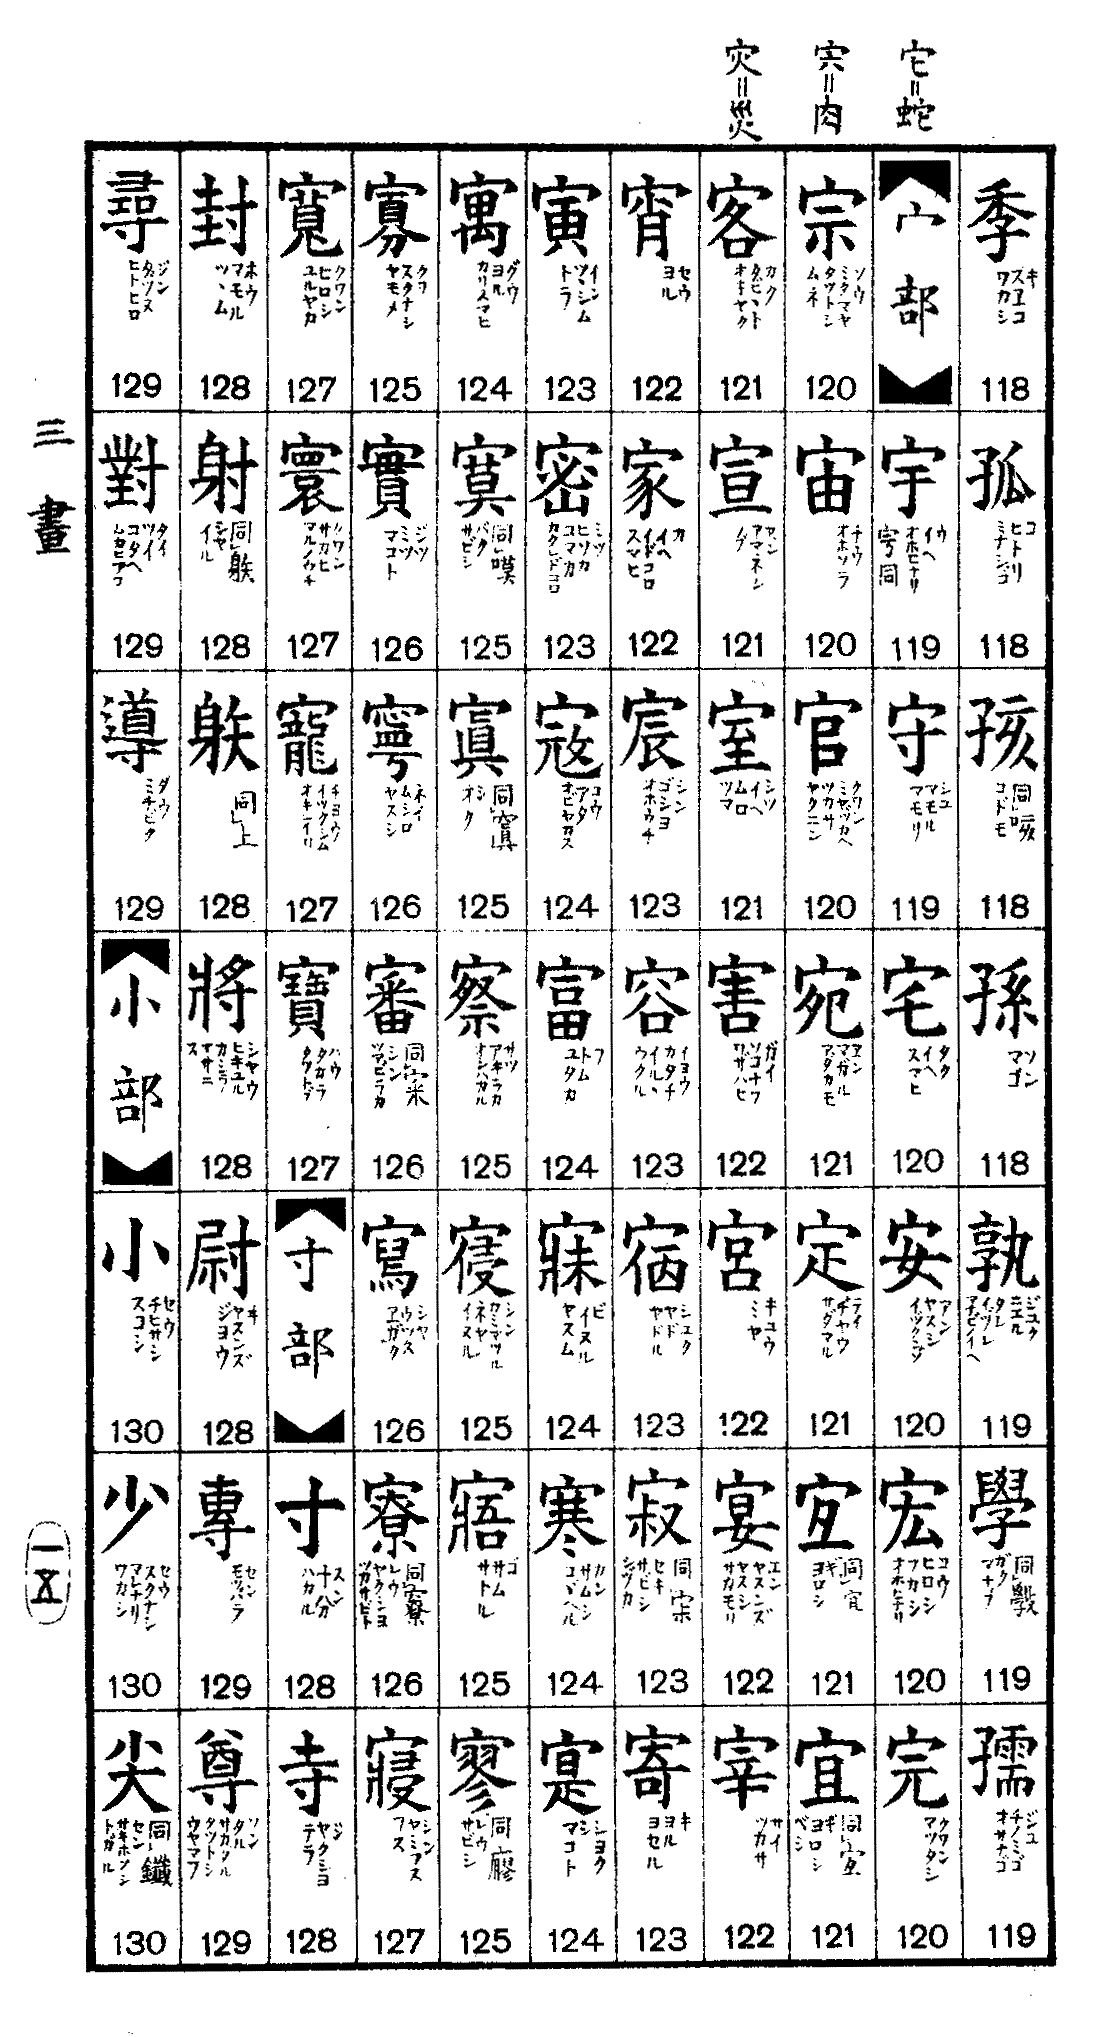 宀=蛇
宍=肉
灾=災
季
キ
スヱコ
ワカシ
118
孤
コ
ヒトリ
ミナシゴ
118
孩
同咳
コドモ
118
孫
ソン
マゴ
118
孰
ジユク
ニエル
タレ
イヅレ
119
學
同斆
ガク
マナブ
119
孺
ジユ
チノミゴ
オサナゴ
119
宀部
宇
ウ
イヘ
オホヒナリ
119
守
シユ
マモル
マモリ
119
宅
タク
イヘ
スマヒ
120
安
アン
ヤスシ
イヅクンゾ
120
宏
コウ
ヒロシ
フカシ
オホヒナリ
120
完
クワン
マツタシ
120
宗
ソウ
ミタマヤ
タツトシ
ムネ
120
宙
チウ
オホソラ
120
官
クワン
ミヤヅカヘ
ツカサ
ヤクニン
120
宛
ヱン
マガル
アタカモ
121
定
テイ
ヂヤウ
サダマル
121
宐
同宜
ギ
ヨロシ
121
宜
ギ
ヨロシ
ベシ
121
客
カク
タビヾト
オキヤク
121
宣
セン
アマネシ
ノブ
121
室
シツ
イヘ
ムロ
ツマ
121
害
ガイ
ソコナフ
ワザハヒ
122
宮
キユウ
ミヤ
122
宴
エン
ヤスンズ
ヤスシ
サカモリ
122
宰
サイ
ツカサ
122
宵
セウ
ヨル
122
家
カ
イヘ
イドコロ
スマヒ
122
宸
シン
ゴシヨ
オホウチ
123
容
イヨウ
カタチ
イルヽ
ウクル
123
宿
シユク
ヤド
ヤドル
123
寂
同宋
セキ
サビシ
シヅカ
123
寄
キ
ヨル
ヨセル
123
寅
イン
ツヽシム
トラ
123
密
ミツ
ヒソカ
コマカ
カクレドコロ
123
寇
コウ
アタ
オビヤカス
124
富
フ
トム
ユタカ
124
寐
ビ
イヌル
ヤスム
124
寒
カン
サムシ
コヾヘル
124
寔
シヨク
マコト
124
寓
グウ
ヨル
カリズマヒ
124
寞
同嗼
バク
サビシ
125
寘
シ
オク
125
察
サツ
アキラカ
オシハカル
125
寖
シン
イヌル
125
寤
ゴ
サムル
サトル
125
寥
同廫
レウ
サビシ
125
寡
クワ
スクナシ
ヤモメ
125
實
ジツ
ミツ
マコト
126
寧
ネイ
ムシロ
ヤスシ
126
審
同宷
シン
ツマビラカ
126
寫
シヤ
ウツス
ヱガク
126
寮
レウ
ヤクシヨ
ツカサビト
126
寢
シン
フス
127
寬
クワン
ヒロシ
ユルヤカ
127
寰
クワン
サカヒ
127
寵
チヨウ
イツクシム
オキニイリ
127
寶
ハウ
タカラ
127
寸部
寸
スン
十分
ハカル
128
寺
ジ
ヤクシヨ
テラ
128
封
ホウ
マモル
ツヽム
128
射
シヤ
イル
128
躲
同上
128
將
シヤウ
ヒキユル
マサニ
ス
128
尉
ヰ
ヤスンズ
ジヨウ
128
專
セン
モツパラ
129
尊
ソン
タル
サカダル
タツトシ
ウヤマフ
129
尋
ジン
タヅヌ
ヒトヒロ
129
對
タイ
ツイ
コタヘ
ムカヒアフ
129
導
ダウ
ミチビク
129
小部
小
セウ
チヒサシ
スコシ
130
少
セウ
スクナシ
マレナリ
ワカシ
130
尖
同鑯
セン
トガル
130
三畫
一五